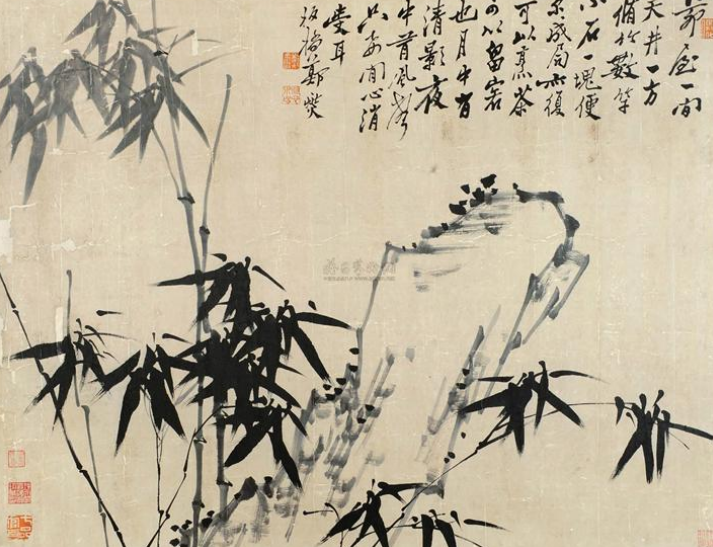 茅屋一間
天井一方
脩竹數竿
小石一塊便
尔成局亦復
可以烹茶
可以留客
也月中有
清影夜
中有風聲
只要閒心消
受耳
板橋鄭燮